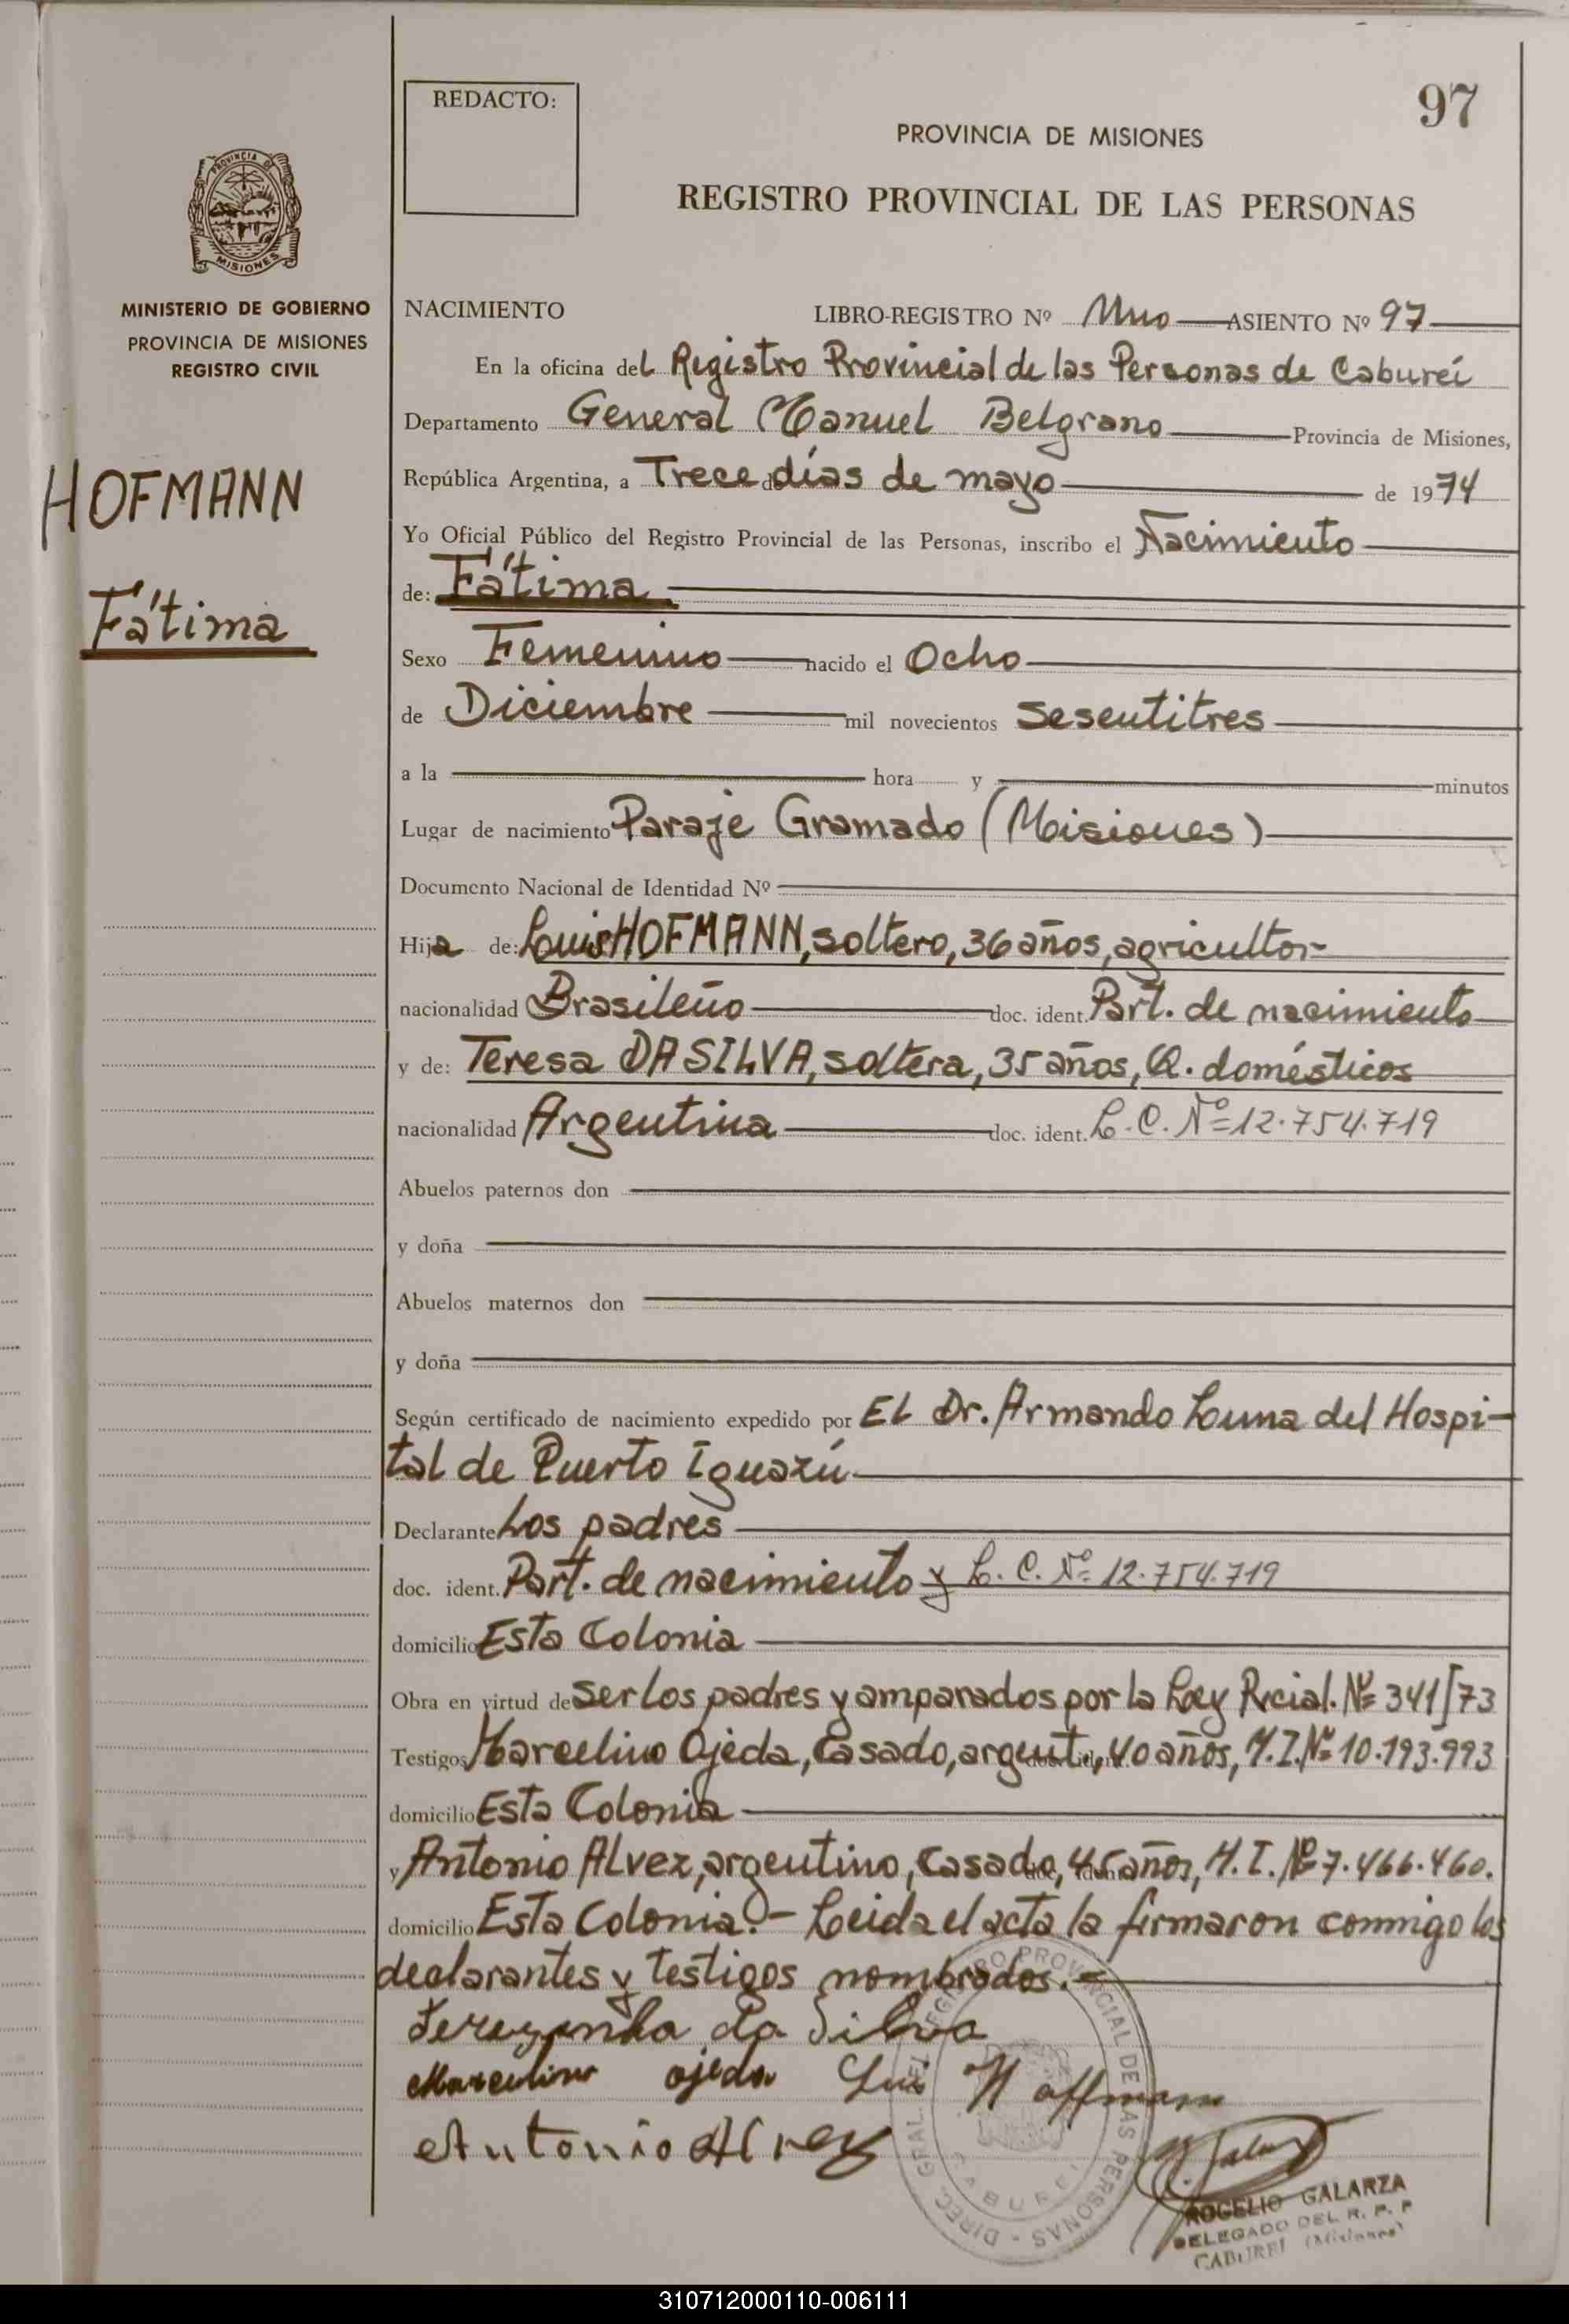 REDACTO:
97
PROVINCIA DE MISIONES
REGISTRO PROVINCIAL DE LAS PERSONAS
PROVINCIA DE
MISIONES
MINISTERIO DE GOBIERNO
PROVINCIA DE MISIONES
REGISTRO CIVIL
HOFMANN
Fátima
NACIMIENTO LIBRO-REGISTRO Nº Uno ASIENTO Nº 97
En la oficina del Registro Provincial de las Personas de Caburéi
Departamento General Manuel Belgrano Provincia de Misiones,
República Argentina, a Trece días de mayo de 1974
Yo Oficial Público del Registro Provincial de las Personas, inscribo el Nacimiento
de: Fátima
Sexo Femenino nacido el Ocho
de Diciembre mil novecientos Sesentitres
a la hora y minutos
Lugar de nacimiento Paraje Gramado (Misiones)
Documento Nacional de Identidad Nº
Hija de: Luis HOFMANN, soltero, 36 años, agricultor
nacionalidad Brasileño doc. ident. Part. de nacimiento
y de: Teresa DA SILVA, soltera, 35 años, Q. domésticos
nacionalidad Argentina doc. ident. L. C. Nº 12.754.719
Abuelos paternos don
y doña
Abuelos maternos don
y doña
Según certificado de nacimiento expedido por El Dr. Armando Luna del Hospi-
tal de Puerto Iguazú
Declarante Los padres
doc. ident. Part. de nacimiento y L. C. Nº 12.754.719
domicilio Esta Colonia
Obra en virtud de ser los padres y amparados por la Ley Pcial. Nº 341/73
Testigos Marcelino Ojeda, Casado, argent., 40 años, M.I. Nº 10.193.993
domicilio Esta Colonia
y Antonio Alvez, argentino, Casado, 45 años, M. I. Nº 7.466.460.
domicilio Esta Colonia.- Leida el acta la firmaron conmigo los
declarantes y testigos nombrados.-
Terezinha da Silva
Marcelino ojeda Luis Hoffmann
Antonio Alvez
REGISTRO PROVINCIAL DE LAS PERSONAS - DIREC. GRAL. DEL
CABUREI
ROGELIO GALARZA
DELEGADO DEL R. P. P
CABUREI (Misiones)
310712000110-006111